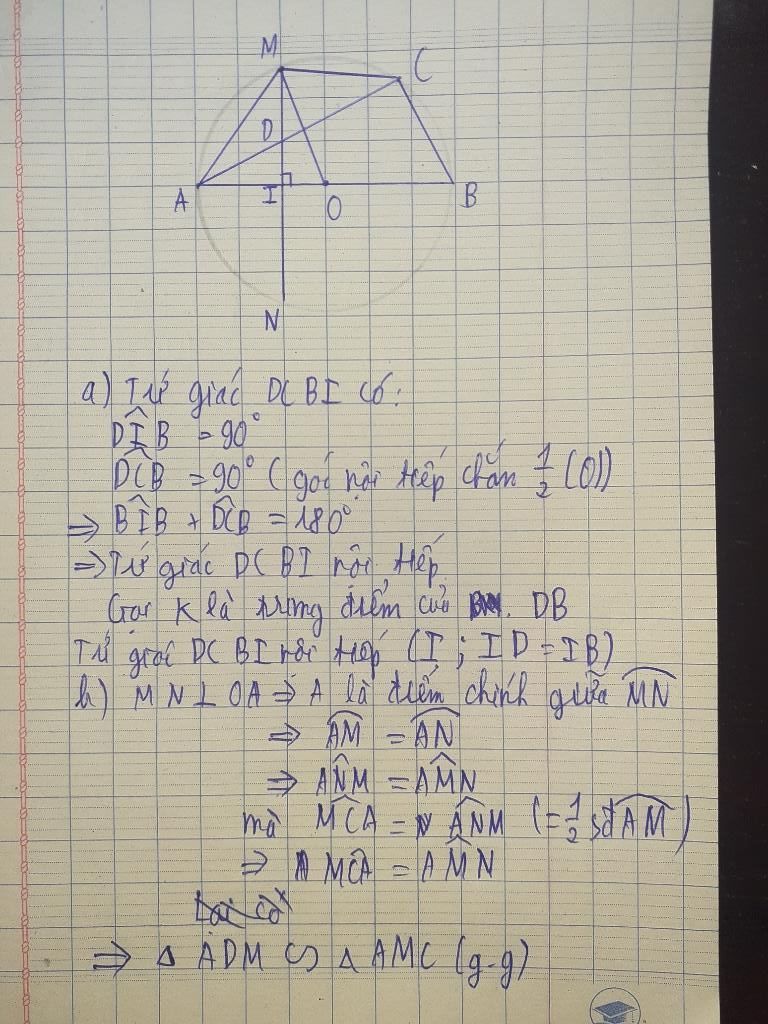 M
C
D
A
I
O
B
N
a) Tứ giác DCBI có:
DÎB = 90°
DĈB = 90° (góc nội tiếp chắn 1/2 (O))
⇒ BÎB + DĈB = 180°
⇒ Tứ giác DCBI nội tiếp
Gọi K là trung điểm của DB
Tứ giác DCBI nội tiếp (I; ID = IB)
b) MN ⊥ OA ⇒ A là điểm chính giữa MN
⇒ AM = AN
⇒ AN̂M = AM̂N
mà MĈA = AN̂M (= 1/2 sđ AM)
⇒ MĈA = AM̂N
⇒ Δ ADM ∽ Δ AMC (g-g)